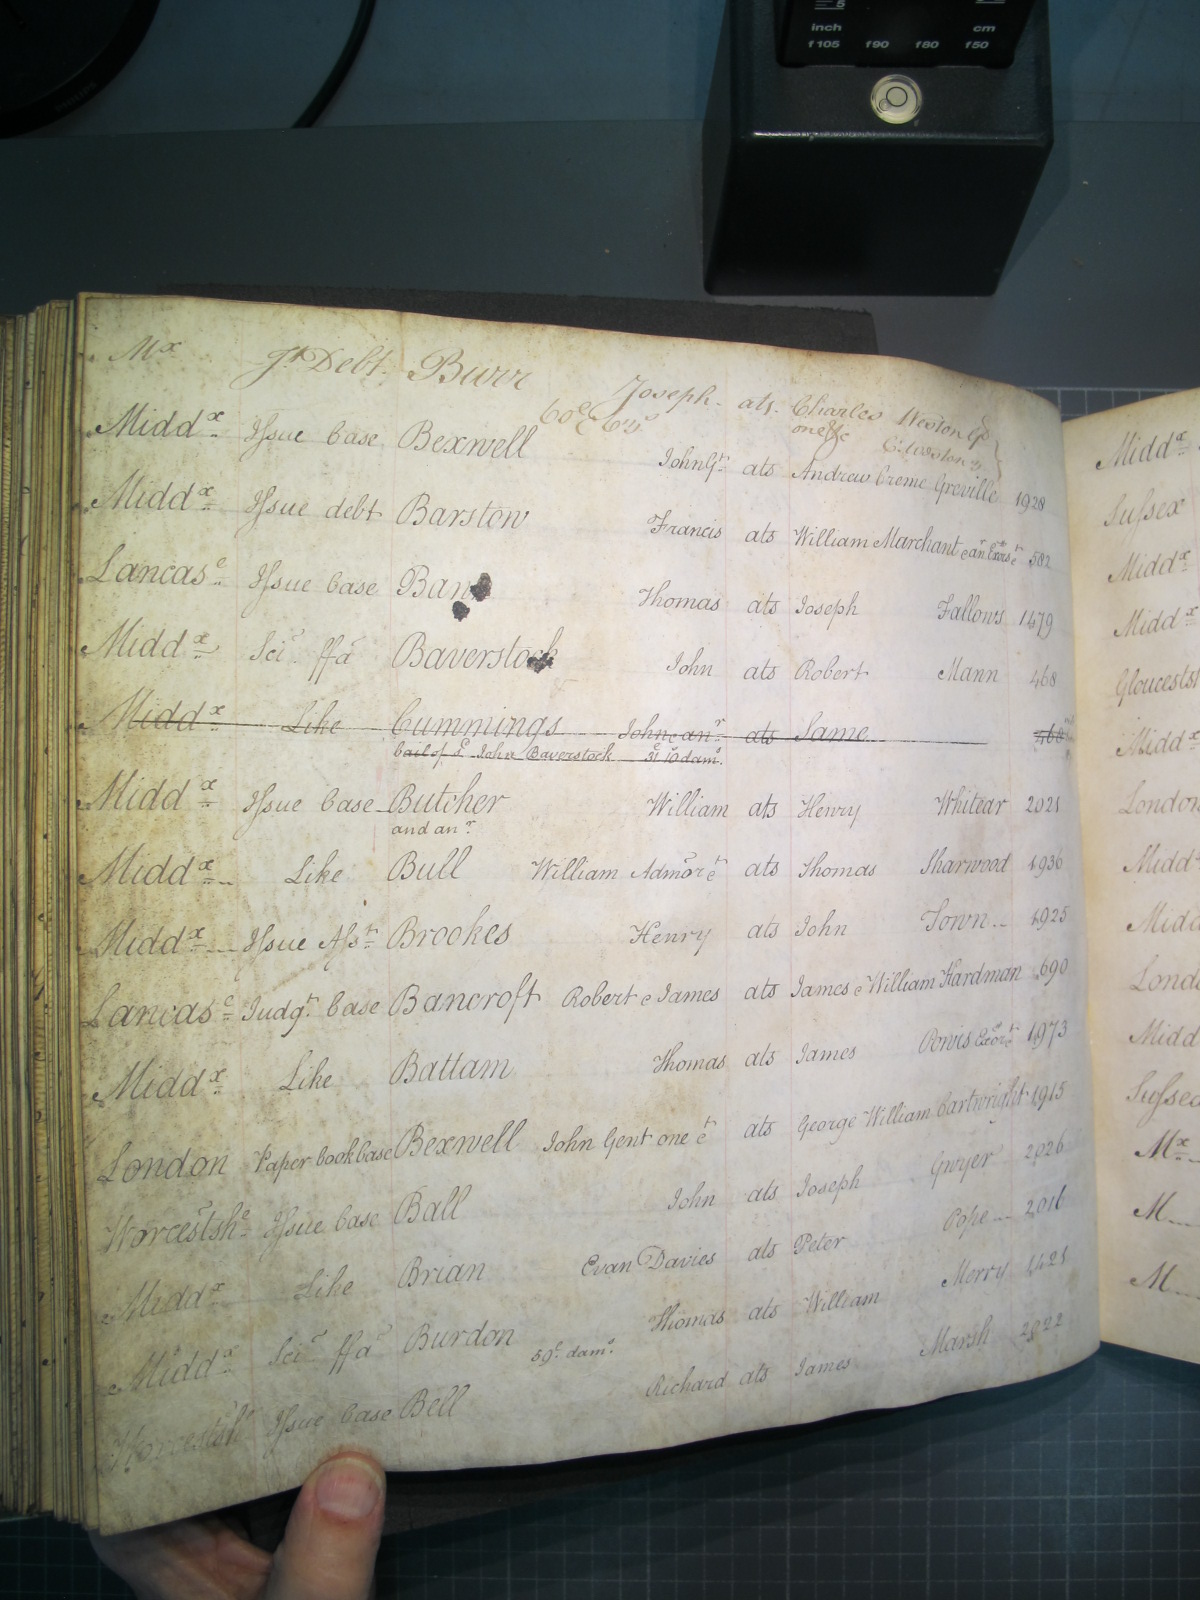 5
inch cm
f105 f90 f80 f50
Mx Jt Debt. Burr Joseph- ats. Charles Weston
60 65s one &c
Middx Issue Case Bexwell John Gt ats Andrew Creme Greville 1928
Middx Issue debt Barstow Francis ats William Marchant & an. 582
Lancase Issue Case Ban Thomas ats Joseph Fallows 1479
Middx Sci ffa Baverstock John ats Robert Mann 468
Middx Like Cummings John & anr ats Same 468
bail of sd John Baverstock 51 10 dams.
Middx Issue Case Butcher William ats Henry Whitear 2021
and anr
Middx Like Bull William Admor &t ats Thomas Sharwood 1936
Middx Issue Asst Brookes Henry ats John Town 1925
Lancase Judgt Case Bancroft Robert & James ats James & William Hardman 690
Middx Like Battam Thomas ats James Powis Exor &t 1973
London Paper book Case Bexwell John Gent one &t ats George William Cartwright 1915
Worcestshe Issue Case Ball John ats Joseph Gwyer 2026
Middx Like Brian Evan Davies ats Peter Pope 2016
Middx Sci ffa Burdon Thomas ats William Merry 1421
59s. dams.
Issue Case Bell Richard ats James Marsh 2022
Middx
Sussex
Middx
Middx
Gloucestsh
Middx
London
Middx
Midd
Lond
Midd
Susse
Mx
M
M